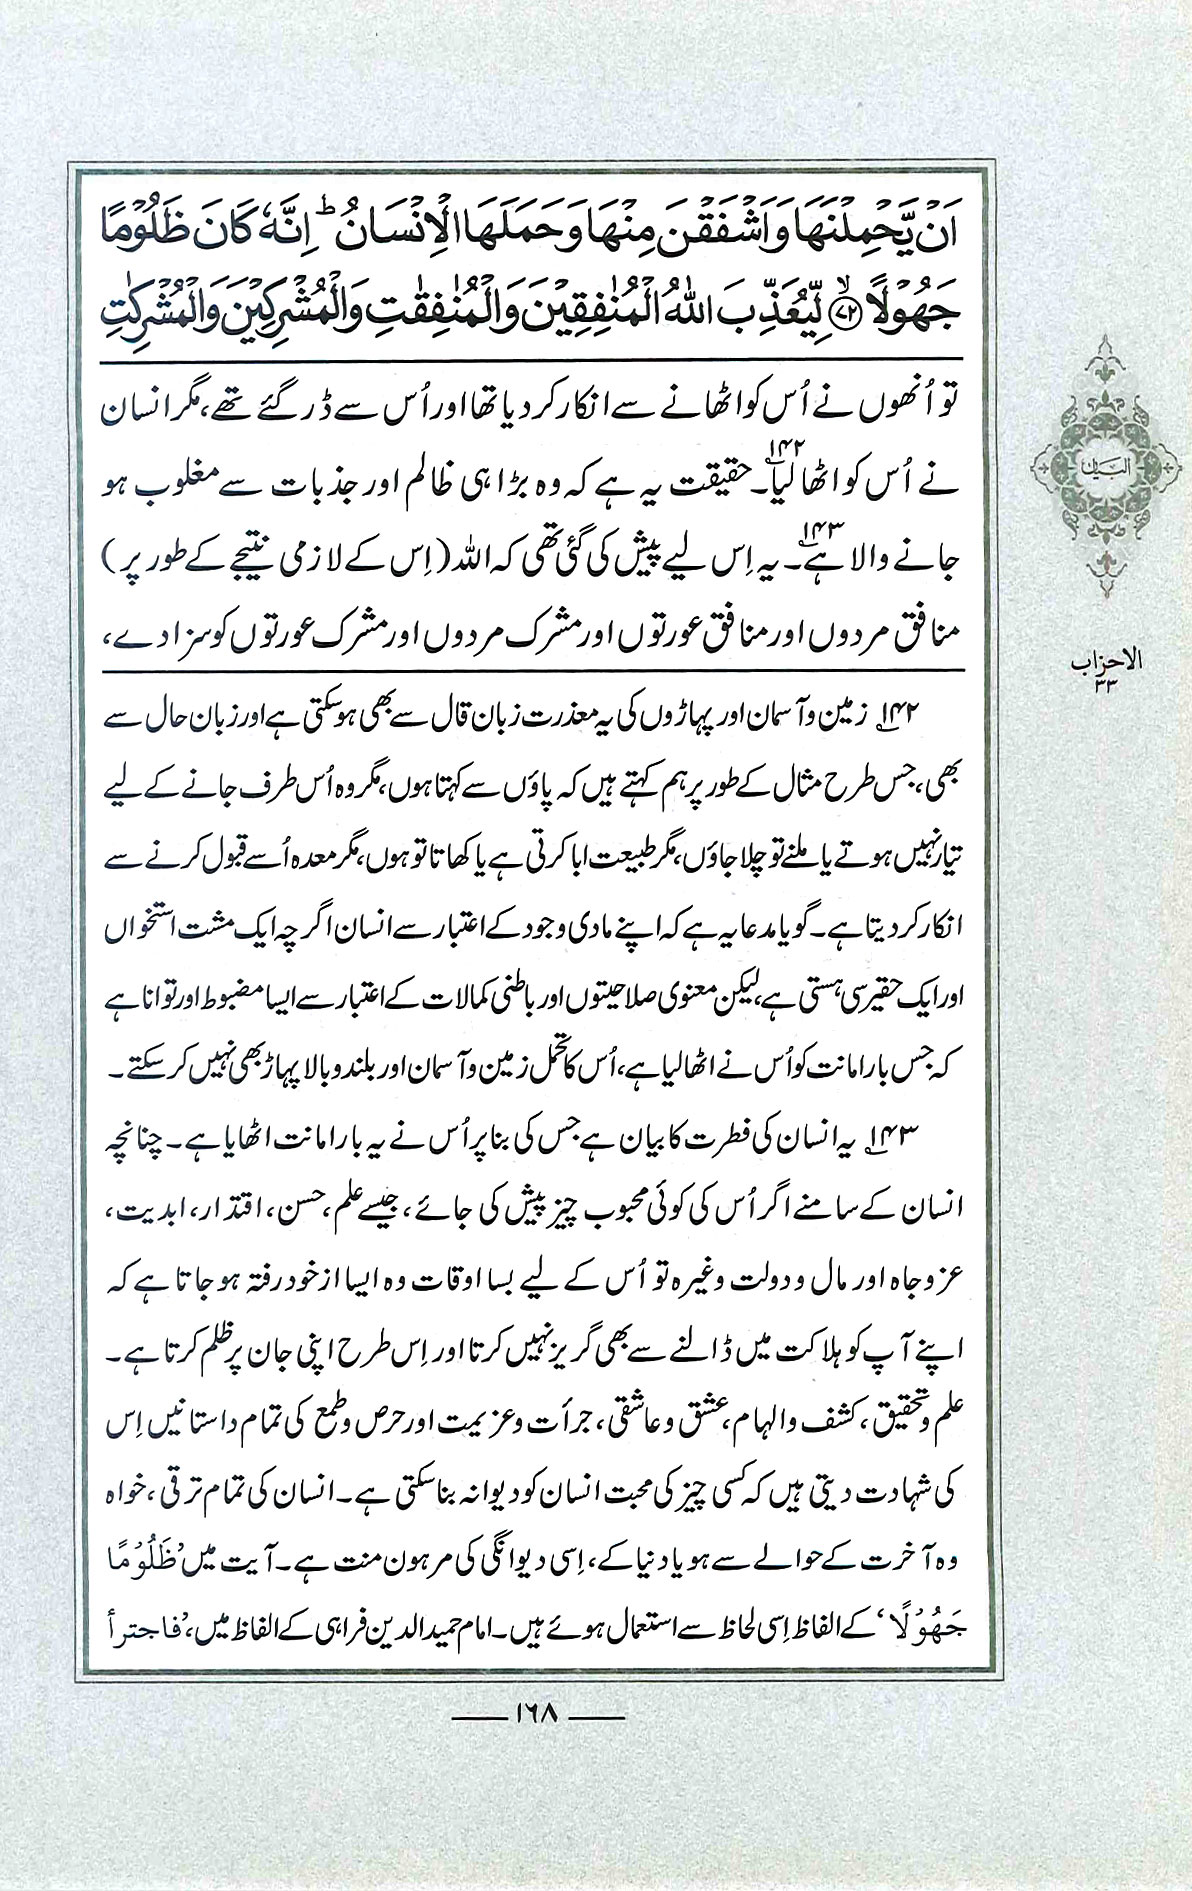 اَنْ يَّحْمِلْنَهَا وَاَشْفَقْنَ مِنْهَا وَحَمَلَهَا الْاِنْسَانُ ؕ اِنَّهٗ كَانَ ظَلُوْمًا
جَهُوْلًا ۙ﴿۷۲﴾ لِّيُعَذِّبَ اللّٰهُ الْمُنٰفِقِيْنَ وَالْمُنٰفِقٰتِ وَالْمُشْرِكِيْنَ وَالْمُشْرِكٰتِ
تو اُنھوں نے اُس کو اٹھانے سے انکار کر دیا تھا اور اُس سے ڈر گئے تھے، مگر انسان
نے اُس کو اٹھا لیا۔۱۴۲ حقیقت یہ ہے کہ وہ بڑا ہی ظالم اور جذبات سے مغلوب ہو
جانے والا ہے۔۱۴۳ یہ اِس لیے پیش کی گئی تھی کہ اللہ (اِس کے لازمی نتیجے کے طور پر)
منافق مردوں اور منافق عورتوں اور مشرک مردوں اور مشرک عورتوں کو سزا دے،
۱۴۲؎ زمین و آسمان اور پہاڑوں کی یہ معذرت زبان قال سے بھی ہو سکتی ہے اور زبان حال سے
بھی، جس طرح مثال کے طور پر ہم کہتے ہیں کہ پاؤں سے کہتا ہوں، مگر وہ اُس طرف جانے کے لیے
تیار نہیں ہوتے یا ملنے تو چلا جاؤں، مگر طبیعت ابا کرتی ہے یا کھاتا تو ہوں، مگر معدہ اُسے قبول کرنے سے
انکار کر دیتا ہے۔ گویا مدعا یہ ہے کہ اپنے مادی وجود کے اعتبار سے انسان اگرچہ ایک مشت استخواں
اور ایک حقیر سی ہستی ہے، لیکن معنوی صلاحیتوں اور باطنی کمالات کے اعتبار سے ایسا مضبوط اور توانا ہے
کہ جس بار امانت کو اُس نے اٹھا لیا ہے، اُس کا تحمل زمین و آسمان اور بلند و بالا پہاڑ بھی نہیں کر سکتے۔
۱۴۳؎ یہ انسان کی فطرت کا بیان ہے جس کی بنا پر اُس نے یہ بار امانت اٹھایا ہے۔ چنانچہ
انسان کے سامنے اگر اُس کی کوئی محبوب چیز پیش کی جائے، جیسے علم، حسن، اقتدار، ابدیت،
عز و جاہ اور مال و دولت وغیرہ تو اُس کے لیے بسا اوقات وہ ایسا از خود رفتہ ہو جاتا ہے کہ
اپنے آپ کو ہلاکت میں ڈالنے سے بھی گریز نہیں کرتا اور اِس طرح اپنی جان پر ظلم کرتا ہے۔
علم و تحقیق، کشف و الہام، عشق و عاشقی، جرأت و عزیمت اور حرص و طمع کی تمام داستانیں اِس
کی شہادت دیتی ہیں کہ کسی چیز کی محبت انسان کو دیوانہ بنا سکتی ہے۔ انسان کی تمام ترقی، خواہ
وہ آخرت کے حوالے سے ہو یا دنیا کے، اِسی دیوانگی کی مرہون منت ہے۔ آیت میں ’ظَلُوْمًا
جَهُوْلًا‘ کے الفاظ اِسی لحاظ سے استعمال ہوئے ہیں۔ امام حمید الدین فراہی کے الفاظ میں، ’فاجترأ
البیان
الاحزاب
۳۳
۱۶۸